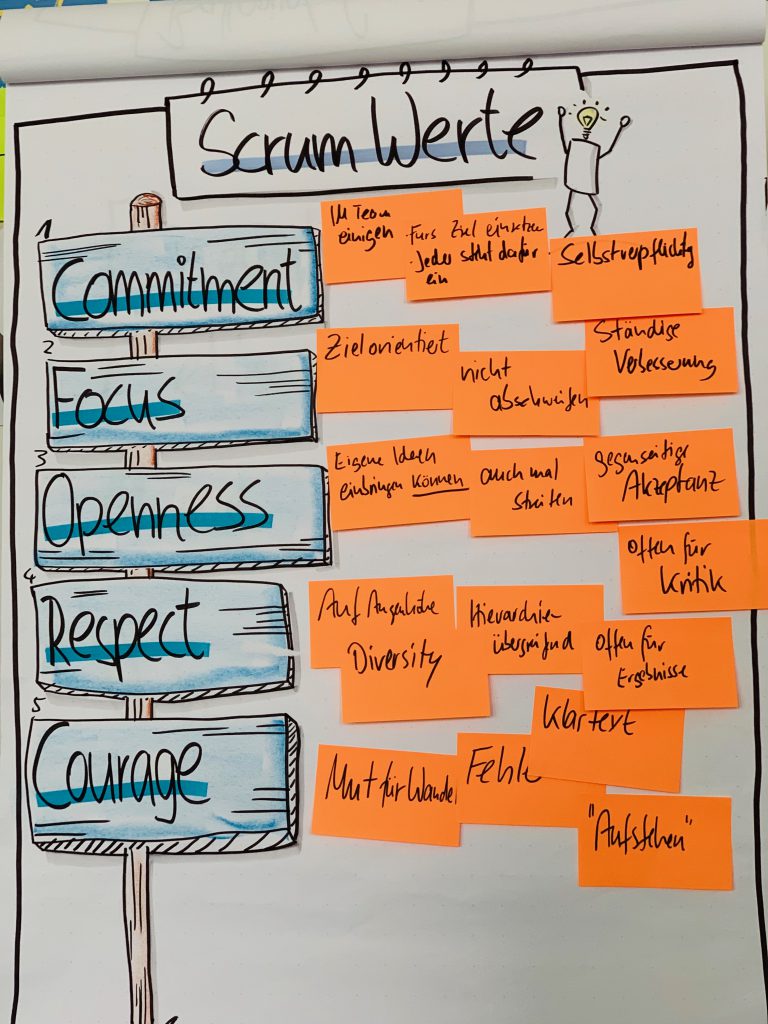 Scrum Werte
1
Commitment
Im Team
einigen
Fürs Ziel einsetzen
Jeder steht dafür
ein
Selbstverpflichtg
2
Focus
Zielorientiert
nicht
abschweifen
Ständige
Verbesserung
3
Openness
Eigene Ideen
einbringen können
auch mal
streiten
gegenseitige
Akzeptanz
Offen für
Kritik
4
Respect
Auf Augenhöhe
Diversity
Hierarchien
übergreifend
Offen für
Ergebnisse
5
Courage
Mut für Wandel
Fehler
Klartext
"Aufstehen"